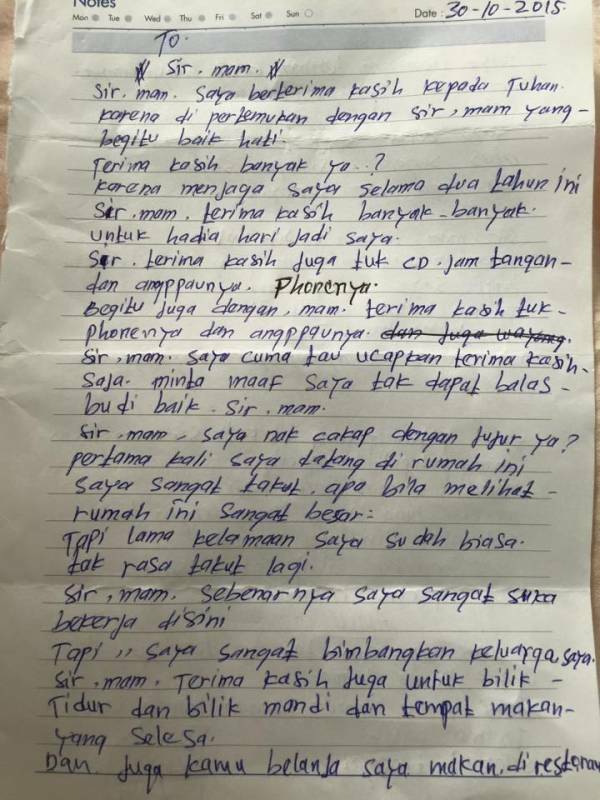 Notes
Mon Tue Wed Thu Fri Sat Sun Date: 30-10-2015.
TO.
Sir. mam.
Sir. mam. saya berterima kasih kepada Tuhan.
karena di pertemukan dengan sir, mam yang-
begitu baik hati.
Terima kasih banyak ya..?
karena menjaga saya selama dua tahun ini
Sir. mam. terima kasih banyak-banyak.
untuk hadia hari jadi saya.
Sir. terima kasih juga tuk CD. jam tangan-
dan angppaunya. Phonenya.
Begitu juga dengan, mam. terima kasih tuk-
phonenya dan angppaunya. dan juga wayang.
Sir, mam. saya cuma tau ucapkan terima kasih-
saja. minta maaf saya tak dapat balas-
budi baik. sir, mam.
Sir, mam, saya nak cakap dengan jujur ya?
pertama kali saya datang di rumah ini
saya sangat takut. apa bila melihat-
rumah ini sangat besar:
Tapi lama kelamaan saya sudah biasa.
tak rasa takut lagi.
Sir, mam. sebenarnya saya sangat suka
bekerja disini
Tapi,, saya sangat bimbangkan keluarga saya.
Sir. mam. Terima kasih juga untuk bilik-
Tidur dan bilik mandi dan tempat makan-
yang selesa.
Dan juga kamu belanja saya makan. di restoran